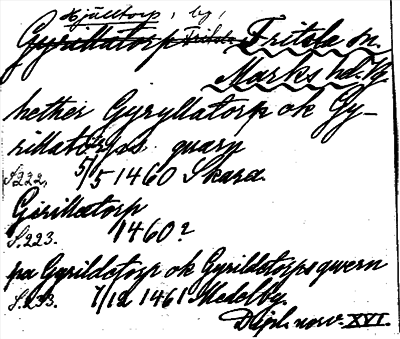 Hjälltorp, by,
Gyrillatorp Fritsla Fritsla sn.
Marks hd. Vg
hether Gyryllatorp ok Gy-
rillatorps quarn
S.222. 5/5 1460 Skara.
Girillatorp
S.223. 1460?
pa Gyrildetorp ok Gyrildetorps qvern
S.233. 7/12 1461 Medelby.
Dipl. nov. XVI.